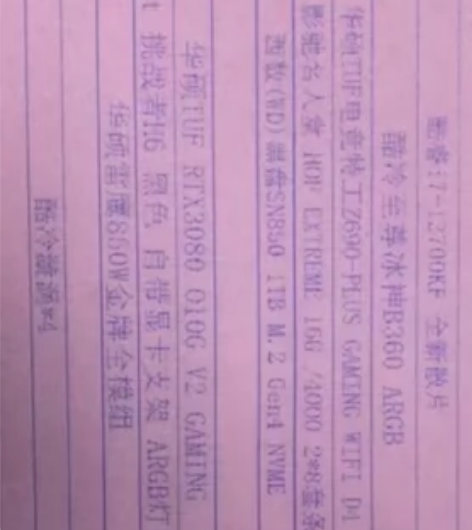 酷睿i7-12700KF 全新散片
酷冷至尊冰神B360 ARGB
华硕TUF电竞特工Z690-PLUS GAMING WIFI D4
影驰名人堂 HOF EXTREME 16G /4000 2*8套条
西数(WD)黑盘SN850 1TB M.2 Gen4 NVME
华硕TUF RTX3080 O10G V2 GAMING
t 挑战者H6 黑色 自带显卡支架 ARGB灯
华硕雷鹰850W金牌全模组
酷冷 *4